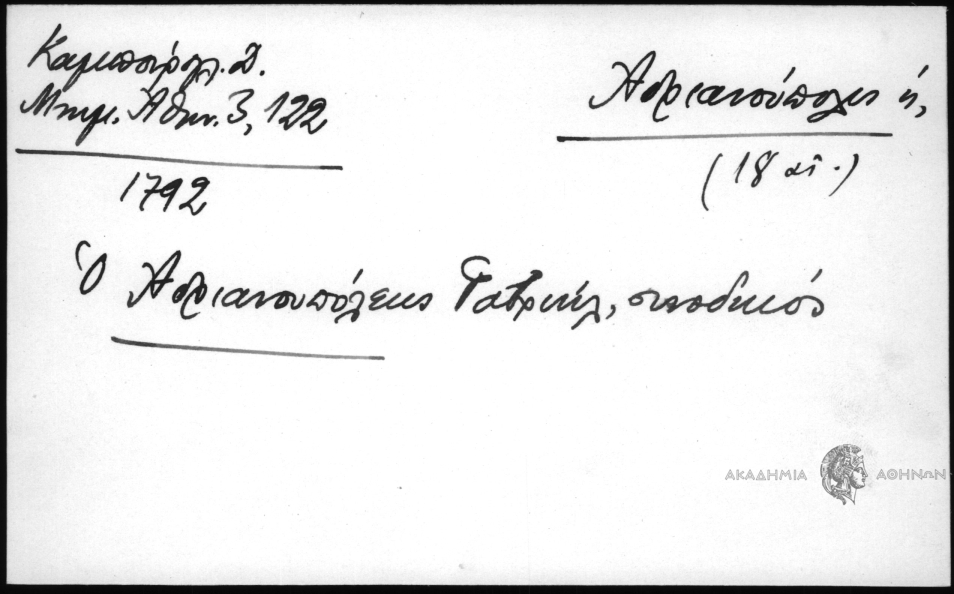 Καμπούρογλ. Δ.
Μνημ. Ἀθην. 3, 122
1792
Ἀδριανούπολις ἡ,
(18 αἰ.)
Ὁ Ἀδριανουπόλεως Γαβριήλ, συνοδικός
ΑΚΑΔΗΜΙΑ ΑΘΗΝΩΝ